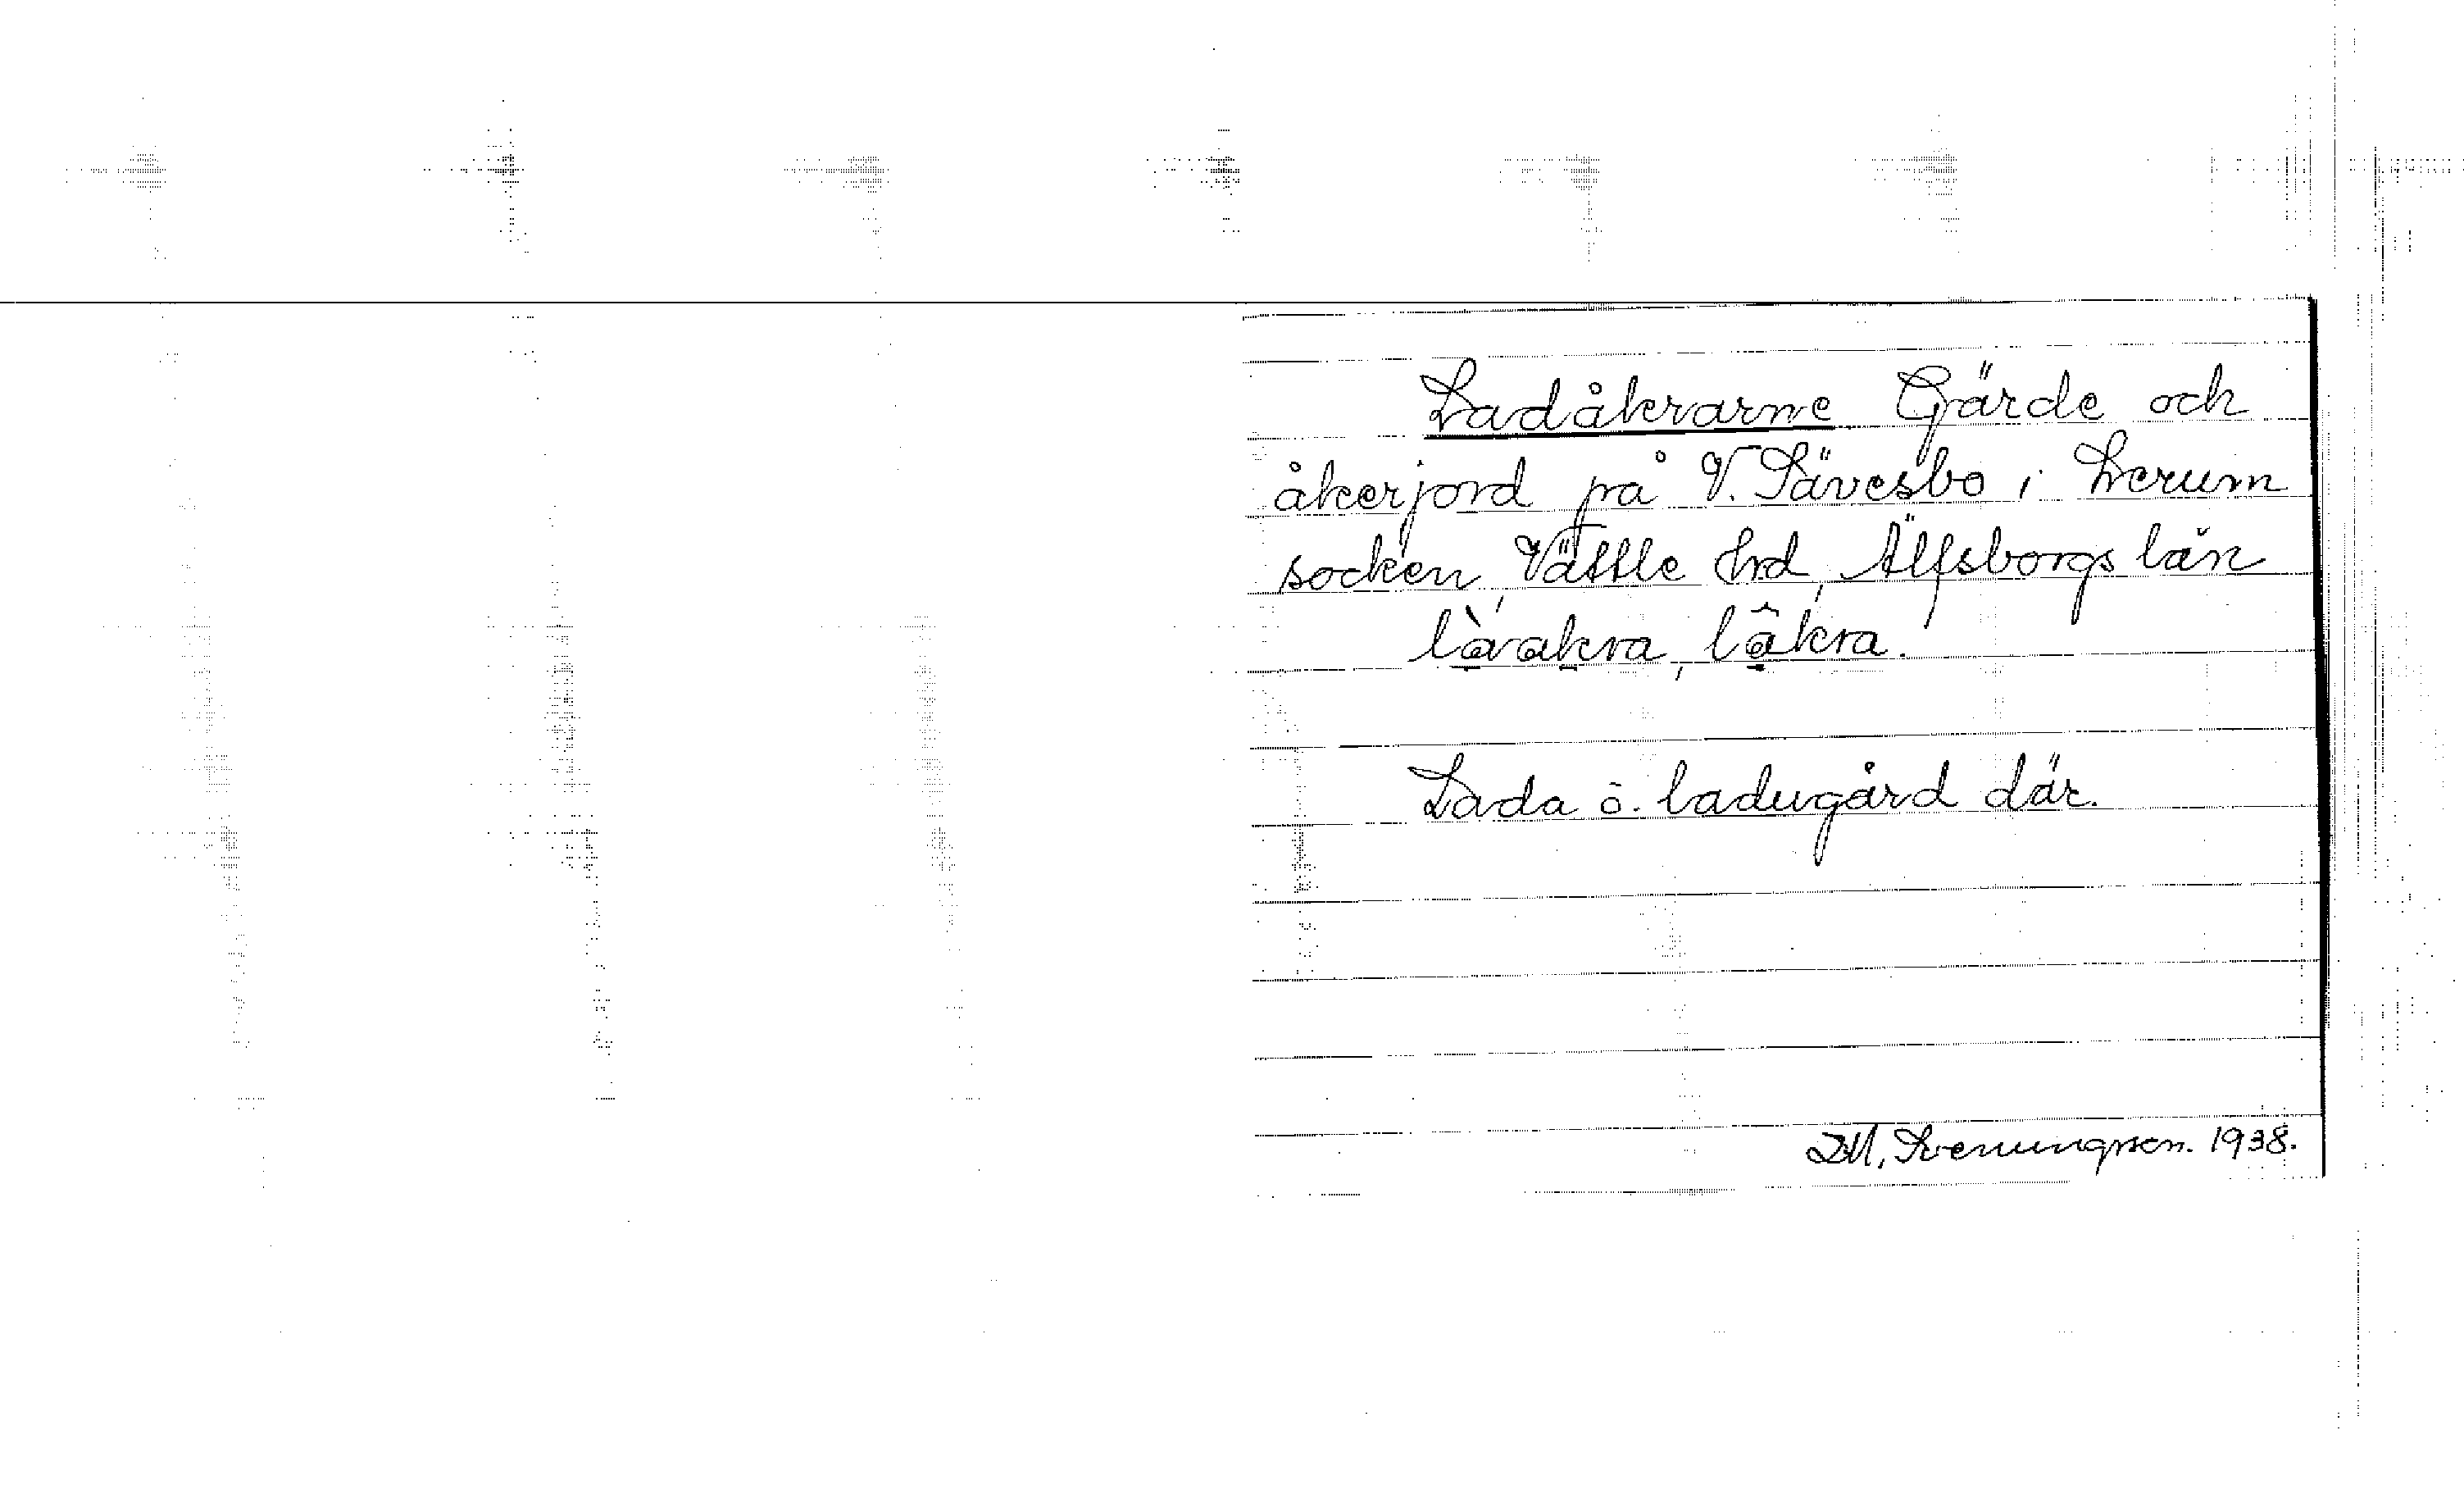 Ladåkrarne Gärde och
åkerjord på V. Sävesbo i Lerum
socken, Vättle hrd, Älfsborgs län
làvakra, lâkra.
Lada o. ladugård där.
D.M. Svenungsson. 1938.